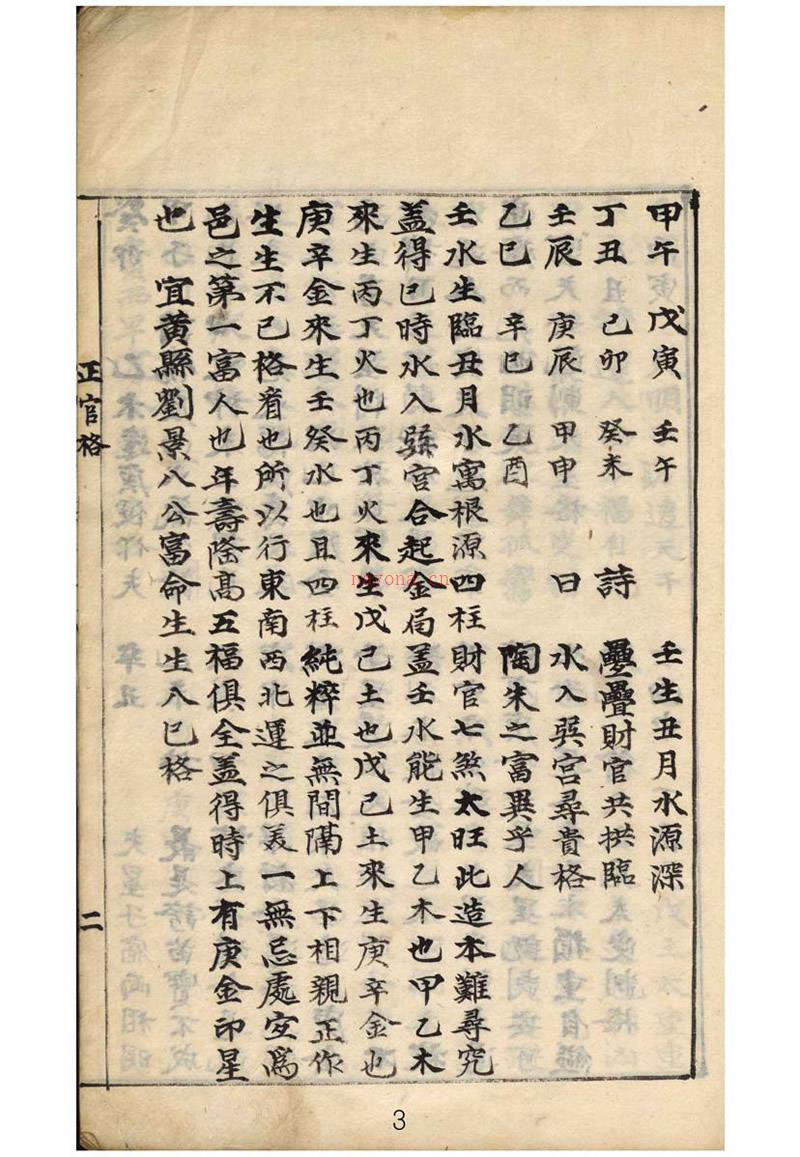 甲午 戊寅 壬午 壬生丑月水源深
丁丑 己卯 癸未 詩 疊疊財官共拱臨
壬辰 庚辰 甲申 曰 水入巽宮尋貴格
乙巳 辛巳 乙酉 陶朱之富異乎人
壬水生臨丑月水寓根源四柱財官七煞太旺此造本難尋究
盖得巳時水入巽宮合起金局盖壬水能生甲乙木也甲乙木
來生丙丁火也丙丁火來生戊己土也戊己土來生庚辛金也
庚辛金來生壬癸水也且四柱純粹並無間隔上下相親正作
生生不已格看也所以行東南西北運之俱美一無忌處安為
邑之第一富人也年壽隆高五福俱全盖得時上有庚金印星
也 宜黃縣劉景八公富命生生八巳格
正官格 二
nayona.cn
3